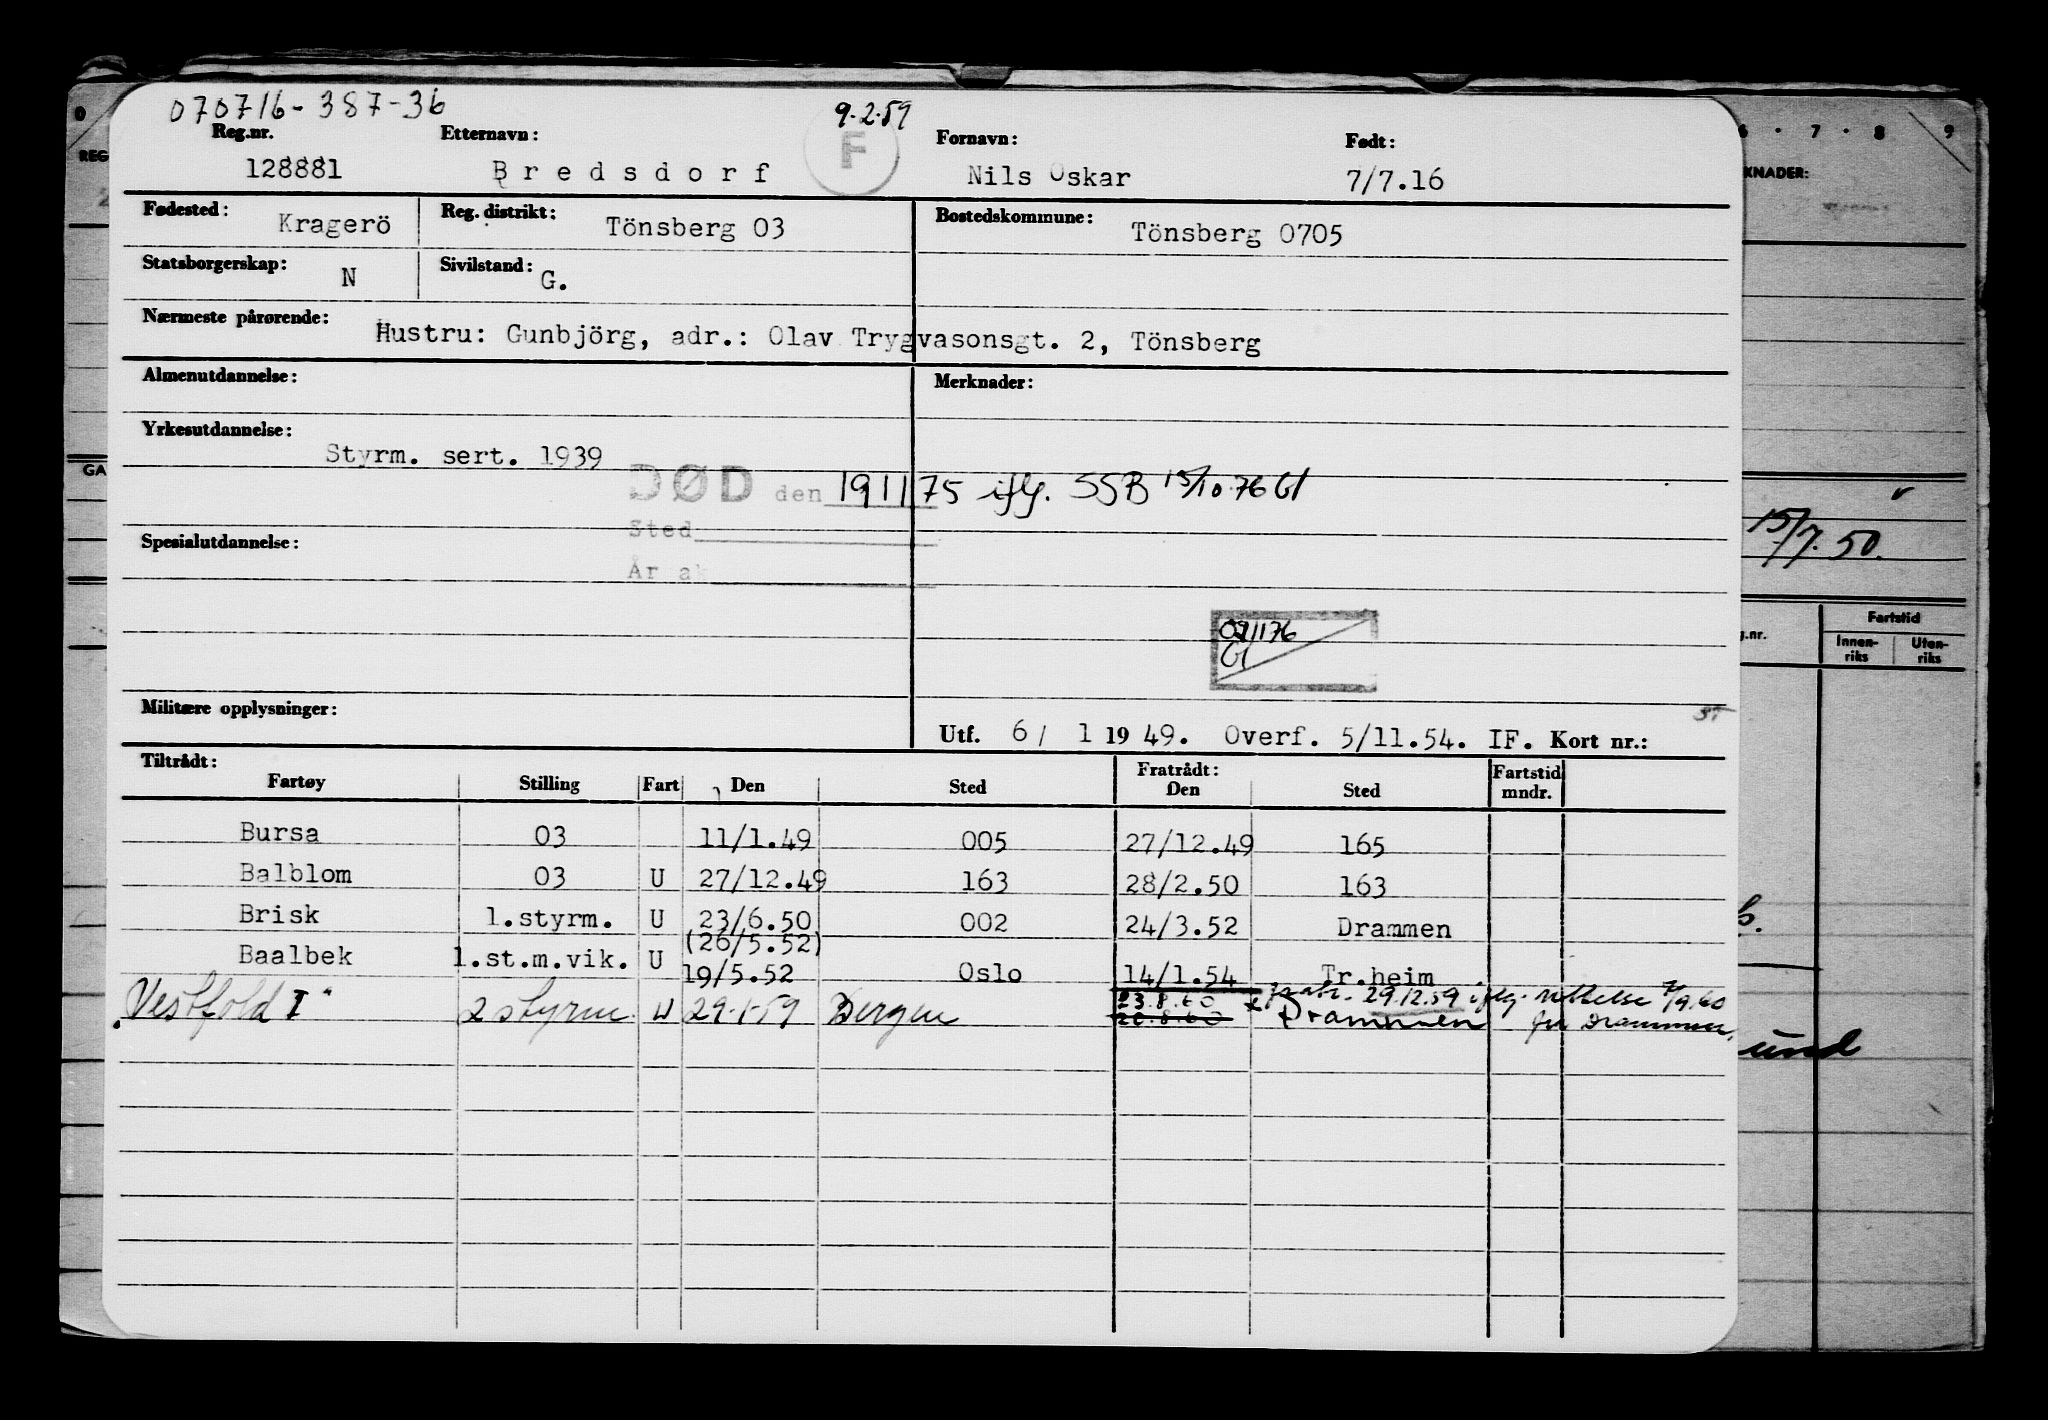 070716-387-36
9.2.59
Reg.nr. Etternavn: F Fornavn: Født:
128881 Bredsdorf Nils Oskar 7/7.16
Fødested: Kragerö Reg. distrikt: Tönsberg 03 Bostedskommune: Tönsberg 0705
Statsborgerskap: N Sivilstand: G.
Nærmeste pårørende: Hustru: Gunbjörg, adr.: Olav Trygvasonsgt. 2, Tönsberg
Almenutdannelse: Merknader:
Yrkesutdannelse: Styrm. sert. 1939
DØD den 191175 iflg. SSB 15/10.76 Gl
Sted
Spesialutdannelse:
År a
Gl
Militære opplysninger:
Utf. 6/ 1 1949. Overf. 5/11.54. IF. Kort nr.:
Tiltrådt: Fratrådt: Fartstid
Fartøy Stilling Fart Den Sted Den Sted mndr.
Bursa 03 11/1.49 005 27/12.49 165
Balblom 03 U 27/12.49 163 28/2.50 163
Brisk 1.styrm. U 23/6.50 002 24/3.52 Drammen
(26/5.52)
Baalbek 1.st.m.vik. U 19/5.52 Oslo 14/1.54 Tr.heim
fratr. 29.12.59 iflg. rettelse 7/9.60
23.8.60
"Vestfold I" 2 styrm U 29.1.59 Bergen Drammen
fra Drammen.
REG
GA
6 . 7 . 8 9
KNADER:
15/7.50.
g.nr. Fartstid
Innen-riks Uten-riks
und